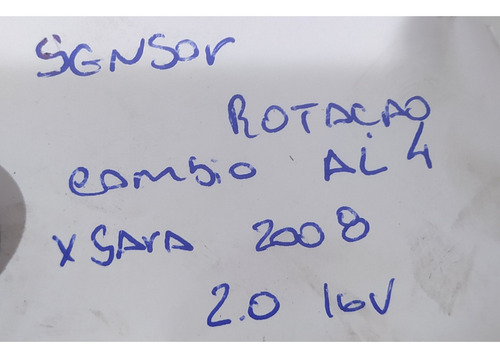 SENSOR
ROTAÇAO
cambio AL4
XSARA 2008
2.0 16V